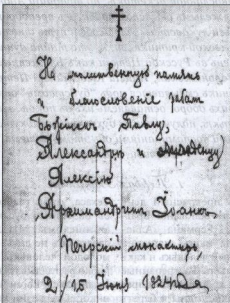 На молитвенную память
и благословеніе рабам
Божіимъ Павлу,
Александрѣ и младенцу
Алексію
Архимандритъ Іоаннъ
Печерскій монастырь,
2/15 Іюня